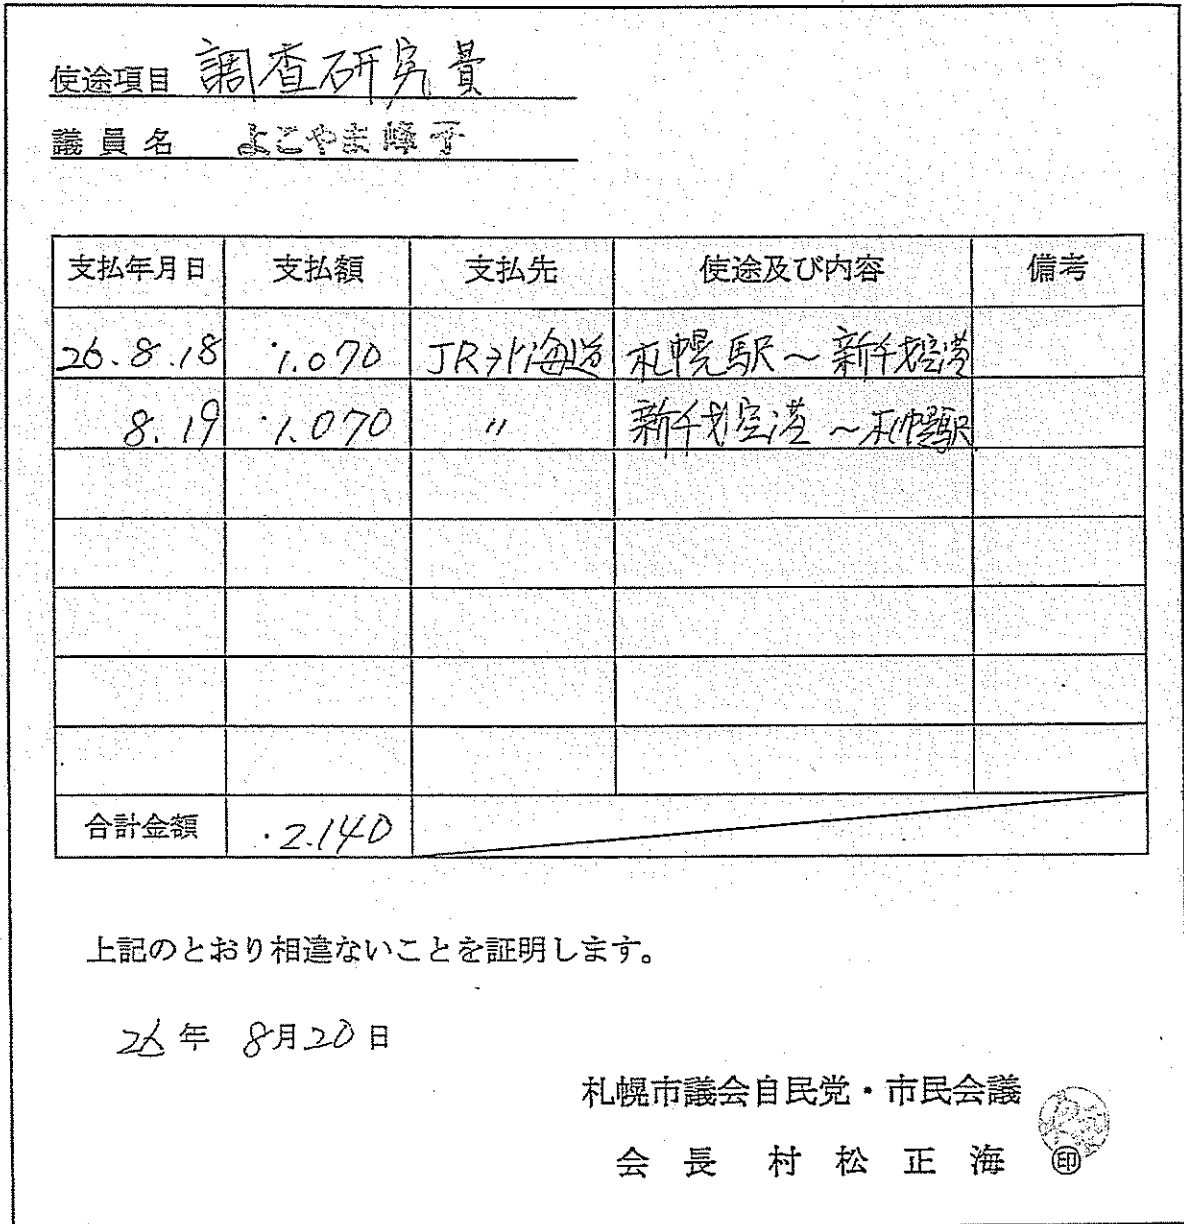 使途項目 調査研究費
議員名 よこやま峰子
支払年月日 支払額 支払先 使途及び内容 備考
26.8.18 1.070 JR北海道 札幌駅～新千歳空港
8.19 1.070 〃 新千歳空港～札幌駅
合計金額 2.140
上記のとおり相違ないことを証明します。
26年 8月20日
札幌市議会自民党・市民会議
会長 村松正海 ㊞